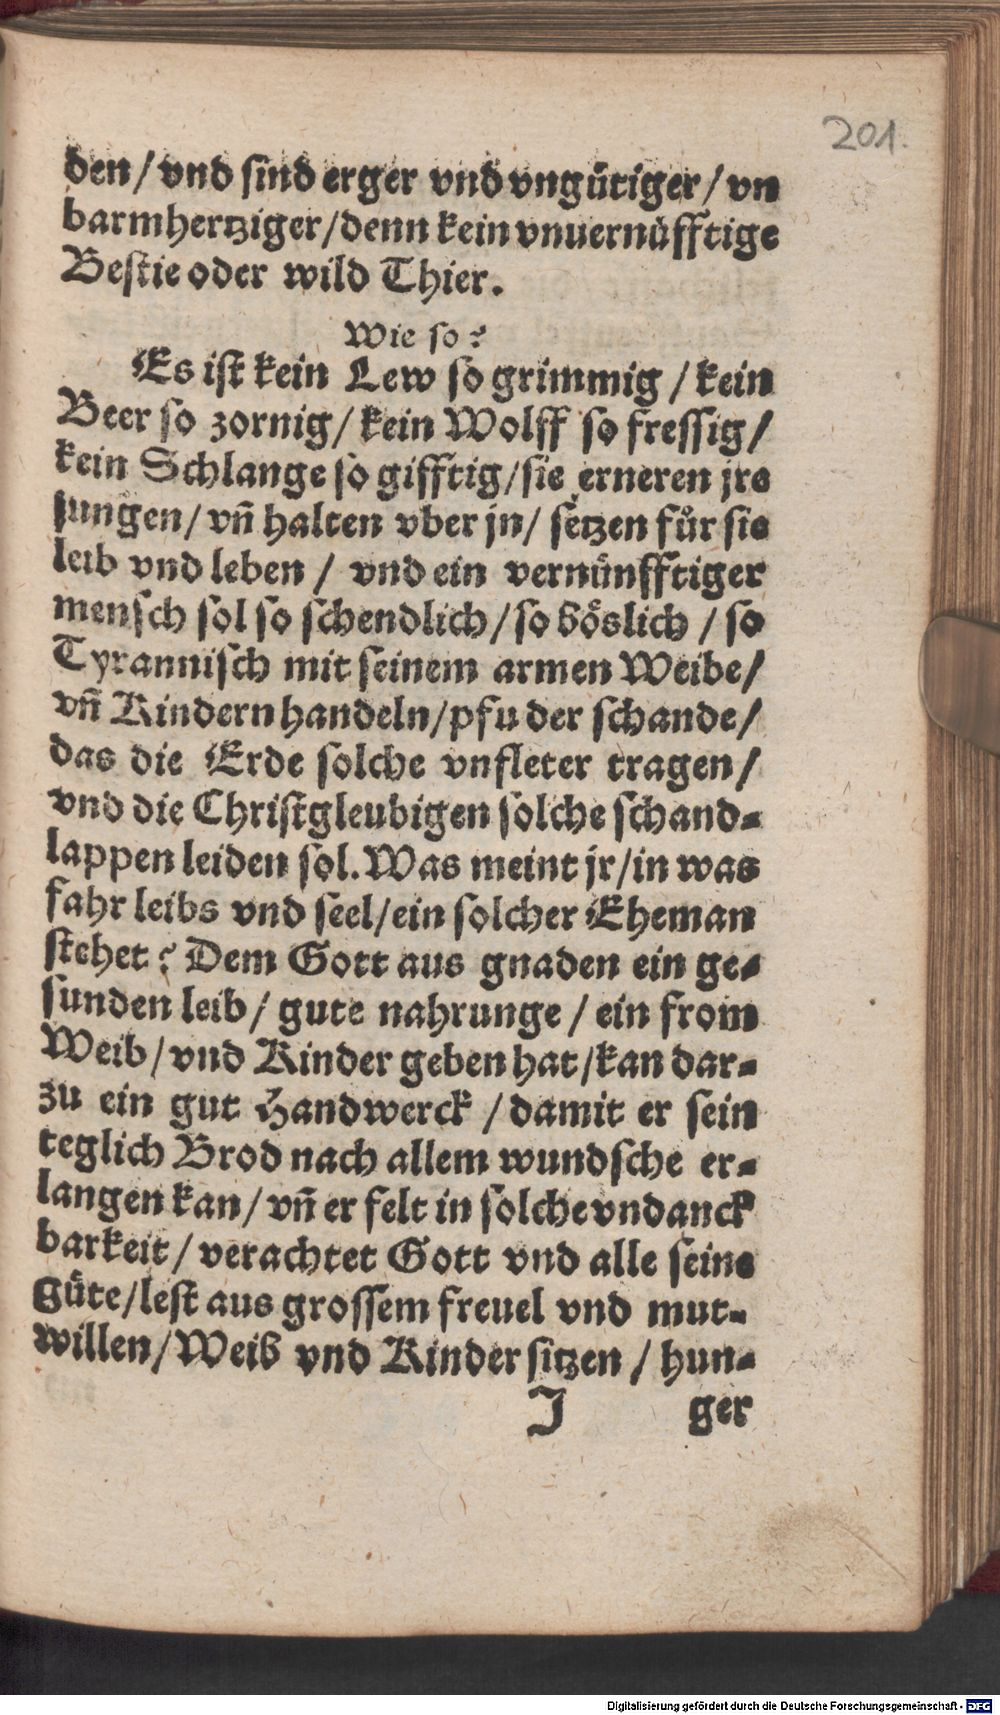 201.
den / vnd sind erger vnd vngütiger / vn
barmhertziger / denn kein vnuernüfftige
Bestie oder wild Thier.
Wie so?
Es ist kein Lew so grimmig / kein
Beer so zornig / kein Wolff so fressig /
kein Schlange so gifftig / sie erneren jre
jungen / vñ halten vber jn / setzen fůr sie
leib vnd leben / vnd ein vernünfftiger
mensch sol so schendlich / so böslich / so
Tyrannisch mit seinem armen Weibe /
vñ Kindern handeln / pfu der schande /
das die Erde solche vnfleter tragen /
vnd die Christgleubigen solche schand-
lappen leiden sol. Was meint jr / in was
fahr leibs vnd seel / ein solcher Eheman
stehet? Dem Gott aus gnaden ein ge-
sunden leib / gute nahrunge / ein from
Weib / vnd Kinder geben hat / kan dar-
zu ein gut Handwerck / damit er sein
teglich Brod nach allem wundsche er-
langen kan / vñ er felt in solche vndanck
barkeit / verachtet Gott vnd alle seine
Güte / lest aus grossem freuel vnd mut-
willen / Weib vnd Kinder sitzen / hun-
J ger
Digitalisierung gefördert durch die Deutsche Forschungsgemeinschaft - DFG